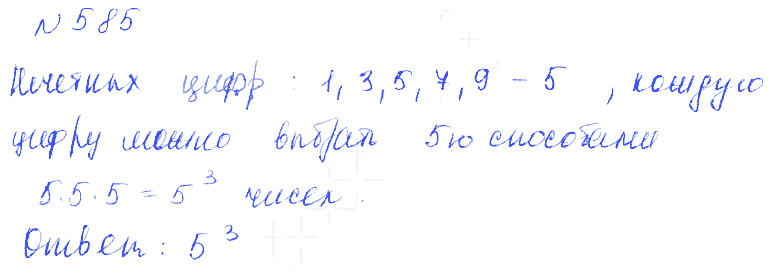 № 585
Нечетных цифр : 1, 3, 5, 7, 9 – 5 , каждую
цифру можно выбрать 5ю способами
5·5·5 = 5³ чисел.
Ответ: 5³